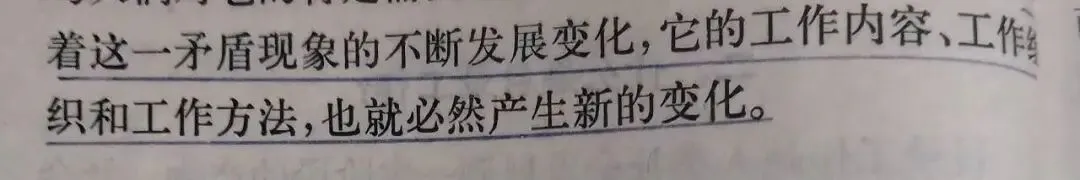 着这一矛盾现象的不断发展变化,它的工作内容、工作
织和工作方法,也就必然产生新的变化。